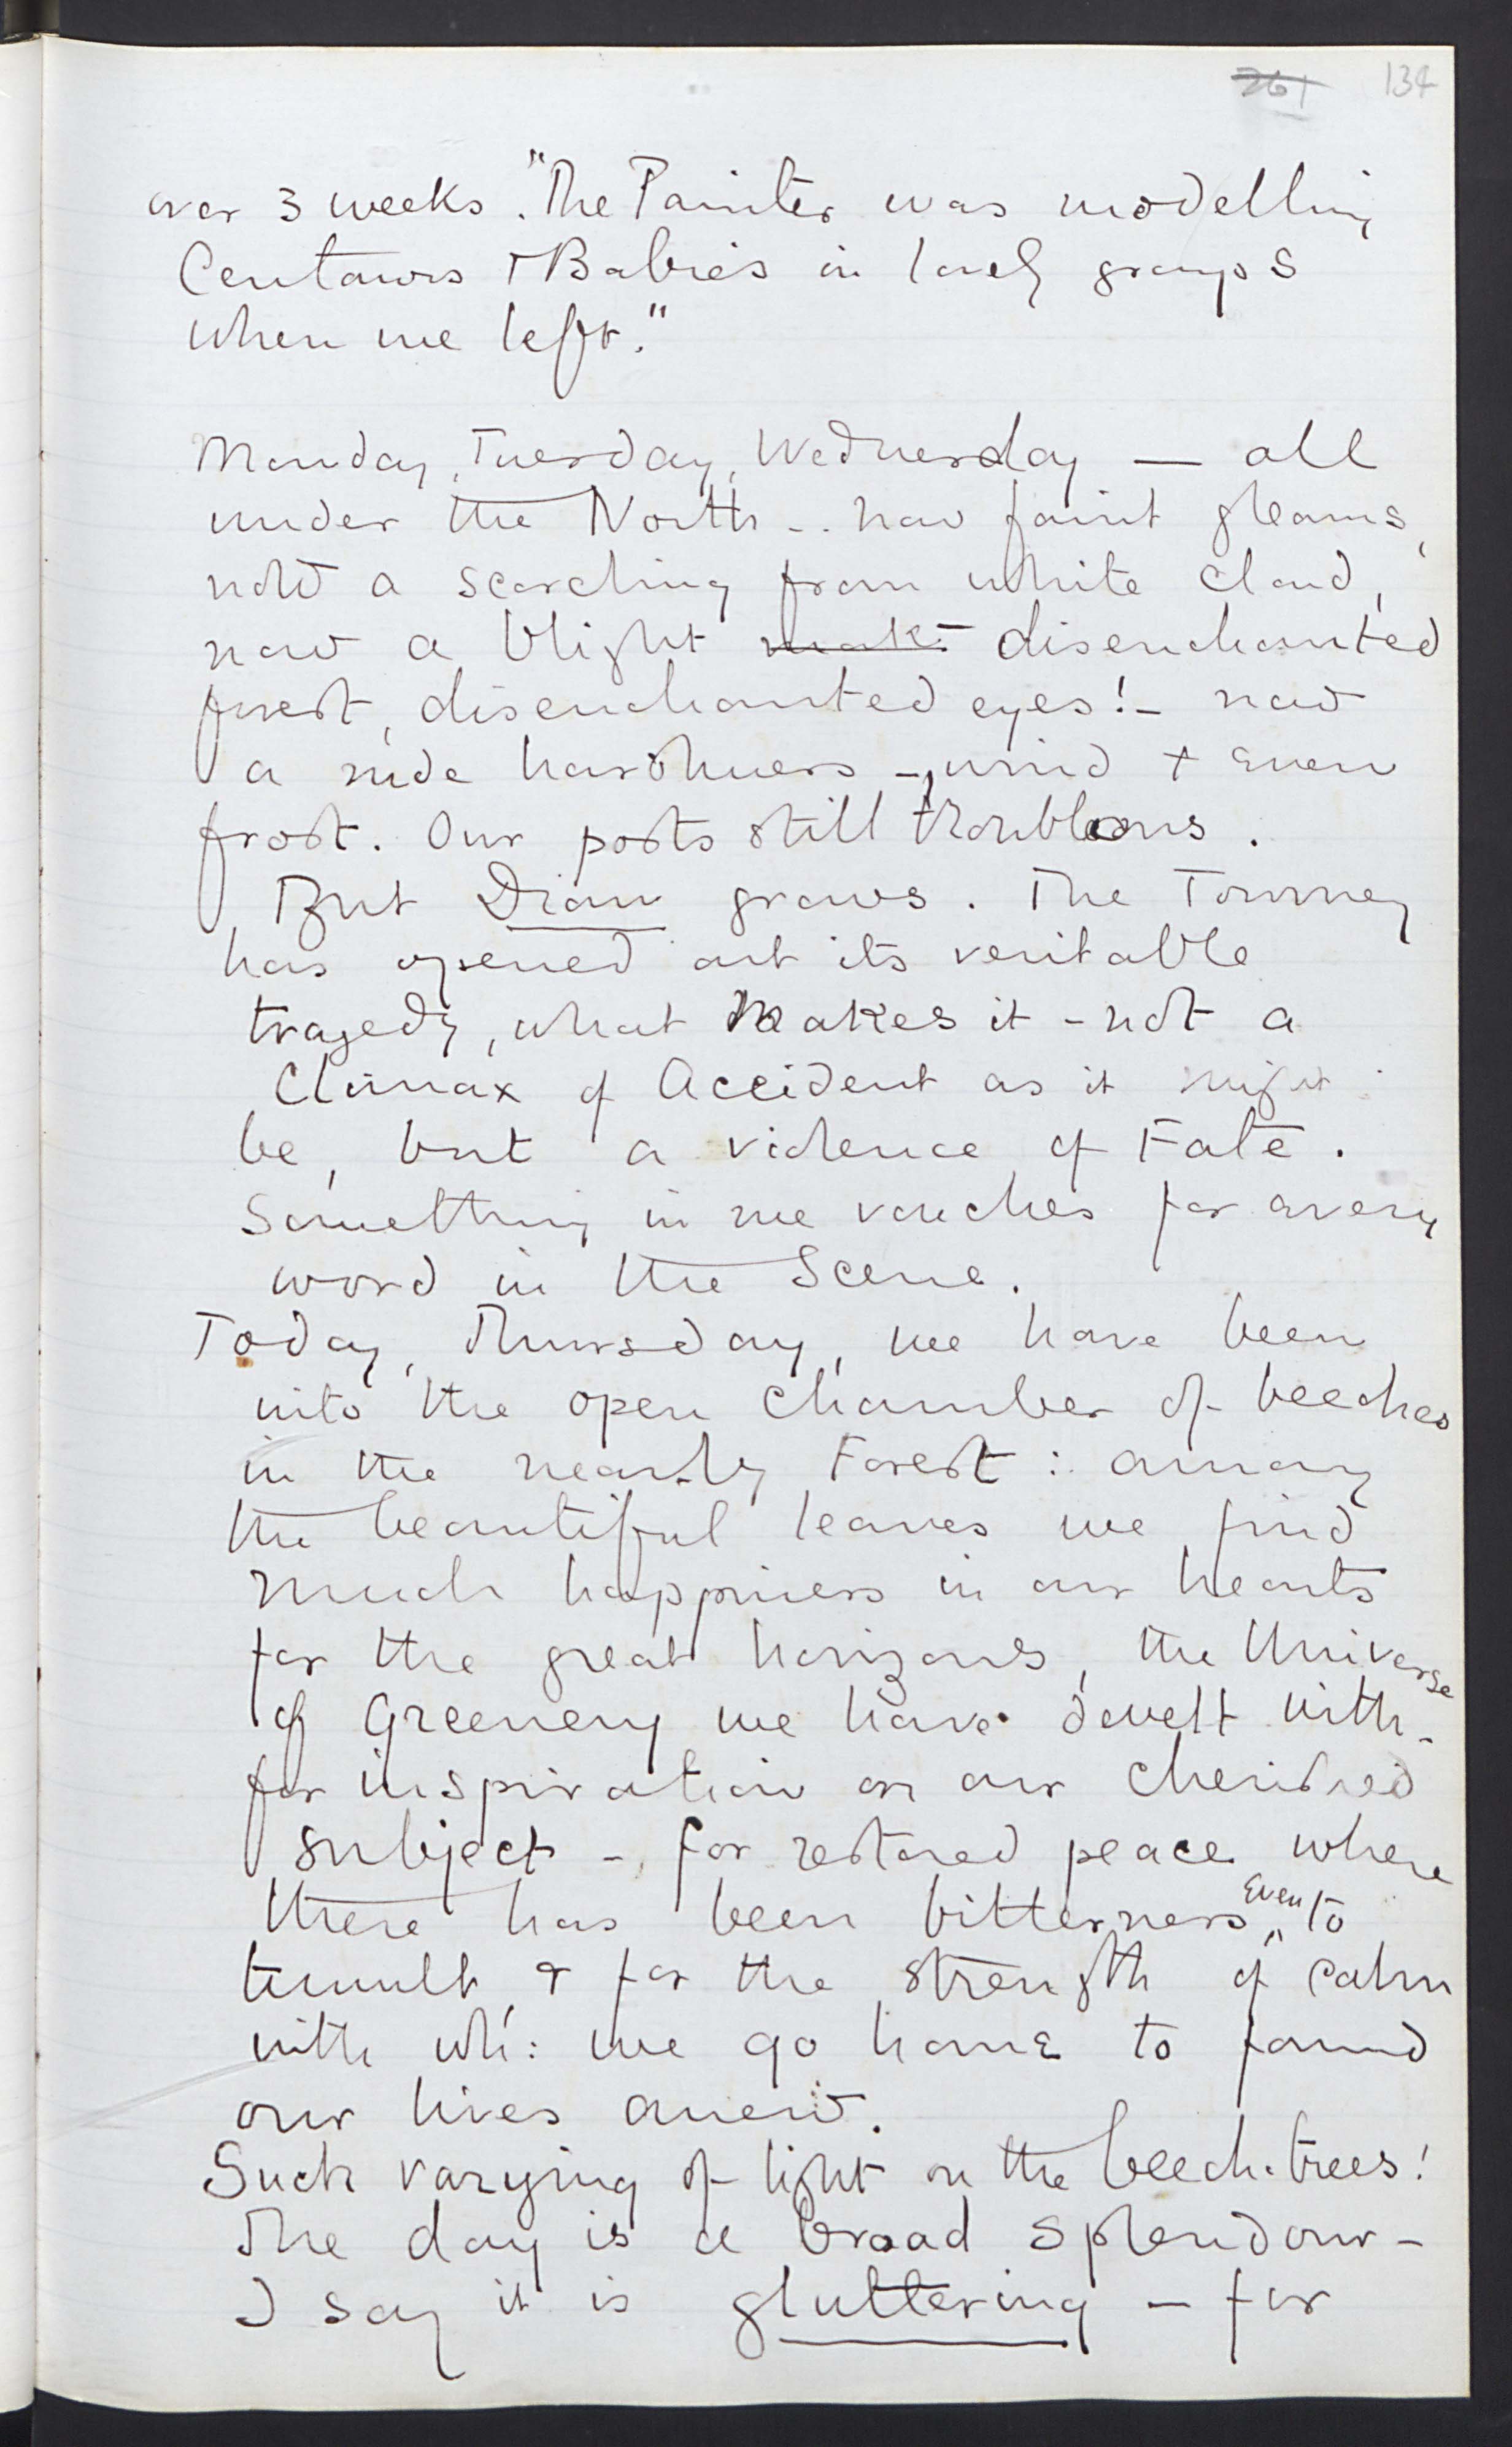 261 134
over 3 weeks. "The Painter was modelling
Centaurs & Babies in lovely groups
when we left."
Monday, Tuesday, Wednesday — all
under the North -.. now faint gleams,
now a scorching from white cloud,
now a blight disenchanted
forest, disenchanted eyes! - now
a rude harshness -, wind & even
frost. Our posts still troublous.
But Dian grows. The Tourney
has opened out its veritable
tragedy, what makes it - not a
Climax of Accident as it might
be, but a violence of Fate.
Something in me vouches for every
word in the Scene.
Today, Thursday, we have been
into the open chamber of beeches
in the nearby Forest: among
the beautiful leaves we find
much happiness in our hearts
for the great horizons, the Universe
of Greenery we have dwelt with -
for inspiration on our cherished
subject -, for restored peace where
there has been bitterness, even to
tumult, & for the strength of calm
with wh: we go home to found
our lives anew.
Such varying of light on the beech-trees!
The day is a broad splendour -
I say it is gluttering - for